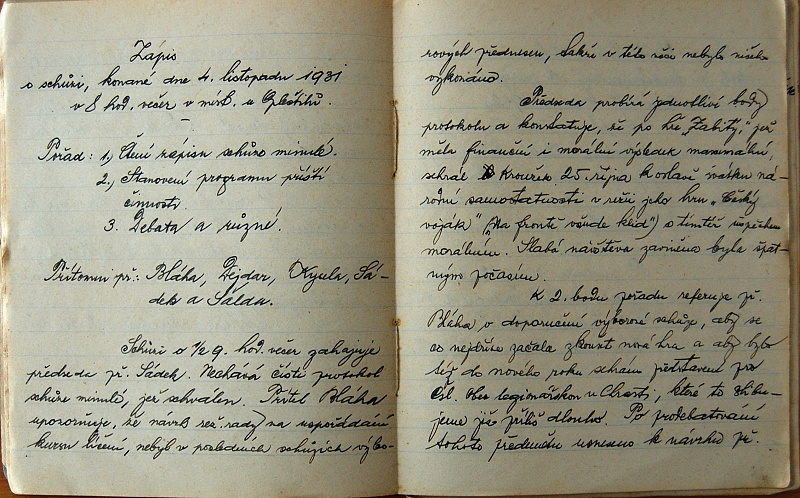 Zápis
o schůzi, konané dne 4. listopadu 1931
v 8 hod. večer v míst. u
Pořad: 1., Čtení zápisu schůze minulé.
2., Stanovení programu příští
činnosti
3. Debata a různé.
Přítomni př.: Bláha, Dejdar, Kyula, Sá-
dek a Šálda.
Schůzi o 1/2 9. hod. večer zahajuje
předseda př. Sádek. Nechává čísti protokol
schůze minulé, jež schválen. Přítel Bláha
upozorňuje, že návrh na uspořádání
kursu líčení, nebyl v posledních schůzích výbo-
rových přednesen, takže v této věci nebylo ničeho
vykonáno.
Předseda probírá jednotlivé body
protokolu a konstatuje, že po hře „Zabitý," jež
měla finanční i morální výsledek maximální,
sehrál kroužek 25. října k oslavě svátku ná-
rodní samostatnosti v režii jeho hru „Český
voják" („Na frontě všude klid") s tímtéž úspěchem
morálním. Slabá návštěva zaviněna byla špat-
ným počasím.
K 2. bodu pořadu referuje př.
Bláha o doporučení výborové schůze, aby se
co nejdříve začala zkoušet nová hra a aby bylo
též do nového roku sehráno představení pro
Čsl. obec legionářskou v Chrasti, které to slibu-
jeme již příliš dlouho. Po prodebatování
tohoto předmětu usneseno k návrhu př.